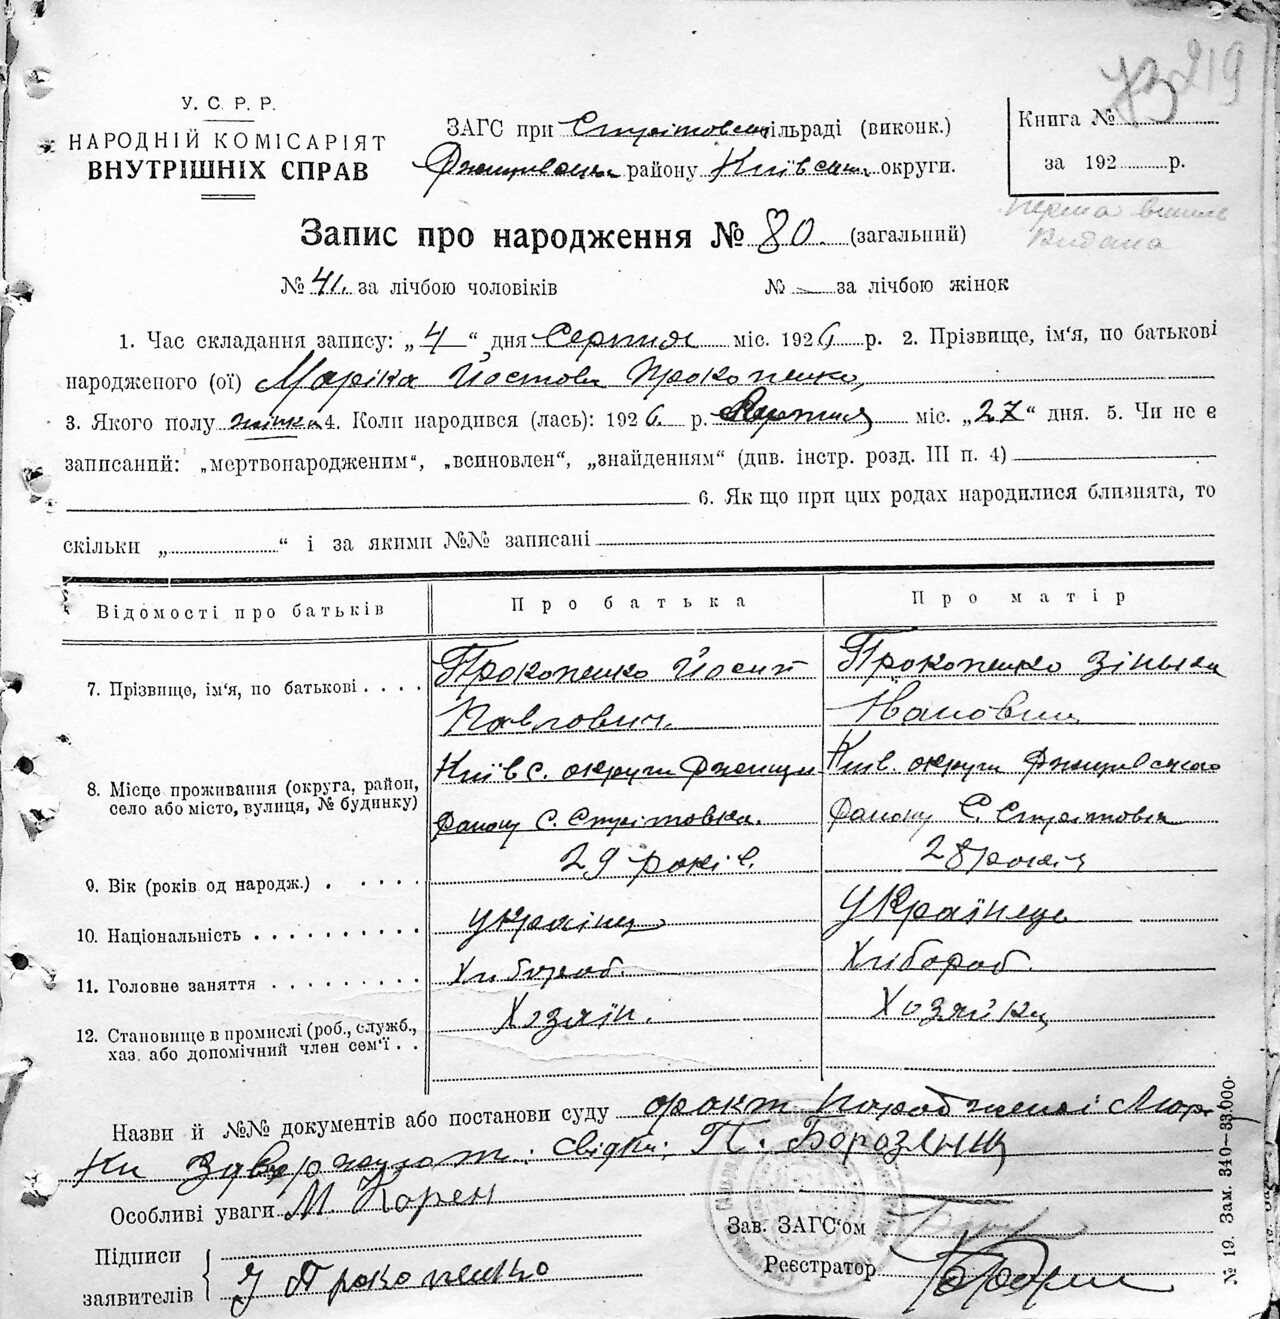 219
73
У. С. Р. Р.
НАРОДНІЙ КОМІСАРІЯТ
ВНУТРІШНІХ СПРАВ
ЗАГС при Стрітовськ. сільраді (виконк.)
району Київськ. округи.
Книга №
за 192 р.
Видана
Запис про народження № 80. (загальний)
№ 41. за лічбою чоловіків № — за лічбою жінок
1. Час складання запису: „4“ дня Серпня міс. 1926 р. 2. Прізвище, ім'я, по батькові
народженого (ої) Марійка Прокопенко,
3. Якого полу жінка 4. Коли народився (лась): 1926. р. міс. „27“ дня. 5. Чи не є
записаний: „мертвонародженим“, „всиновлен“, „знайденням“ (див. інстр. розд. III п. 4)
6. Як що при цих родах народилися близнята, то
скільки „ “ і за якими №№ записані
Відомості про батьків Про батька Про матір
7. Прізвище, ім'я, по батькові . . . . Прокопенко Йосип Прокопенко Зінька
Павлович. Івановна
8. Місце проживання (округа, район, село або місто, вулиця, № будинку) Київс. округи Київ. округи
району С. Стрітовка. району С. Стрітовка
9. Вік (років од народж.) . . . . . 29 років. 28 років
10. Національність . . . . . . . . . . українц українець
11. Головне заняття . . . . . . . . . Хлібороб. Хлібороб.
12. Становище в промислі (роб., служб., хаз. або допомічний член сем'ї . . Хозяїн. Хозяйка
Назви й №№ документів або постанови суду факт народження Марі-
ки свідки: П. Борозенец
Особливі уваги М. Корен
Підписи заявителів Й Прокопенко
Зав. ЗАГС'ом
Реєстратор
№ 19. Зам. 340—33.000.